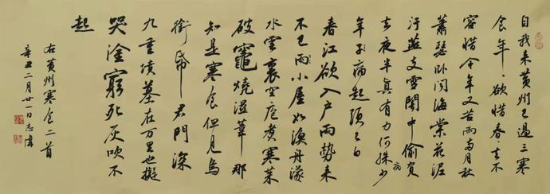 自我来黄州已過三寒
食年〻欲惜春〻去不
容惜今年又苦雨兩月秋
蕭瑟卧聞海棠花泥
汙燕支雪闇中偷負
去夜半真有力何殊少
病
年子病起頭已白
春江欲入户雨勢来
不已雨小屋如漁舟濛〻
水雲裏空庖煮寒菜
破竈燒溼葦那
知是寒食但見烏
銜帋君門深
九重墳墓在万里也擬
哭塗窮死灰吹不
起
右黄州寒食二首
辛丑二月廿一日